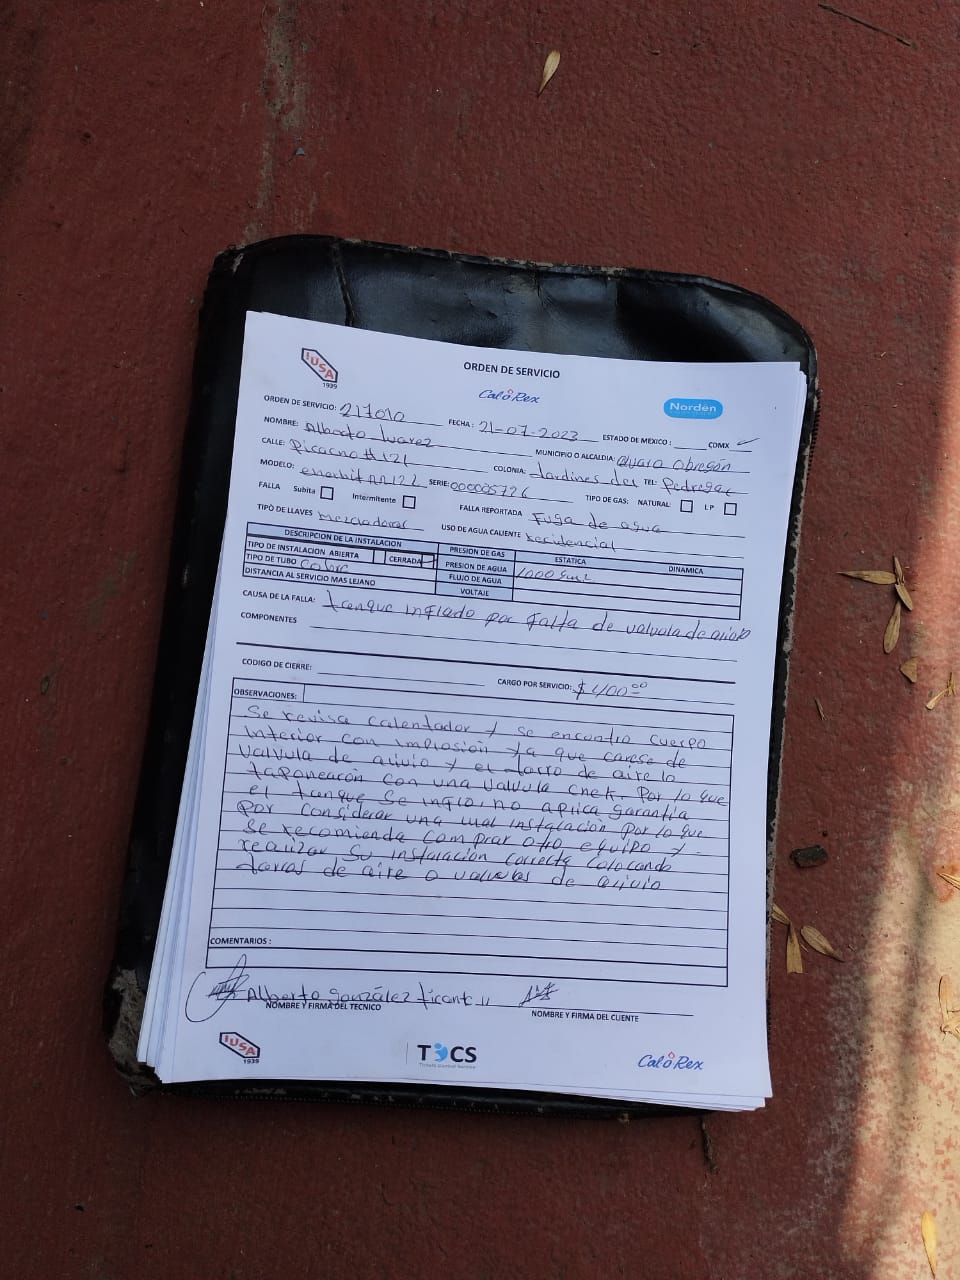 IUSA
1939
ORDEN DE SERVICIO
CaloRex
Nordën
ORDEN DE SERVICIO: 217010 FECHA: 21-07-2023 ESTADO DE MEXICO: CDMX
NOMBRE: Alberto Juarez MUNICIPIO O ALCALDIA: alvaro obregón
CALLE: Picacho #121 COLONIA: Jardines del TEL: Pedregal
MODELO: SERIE: 000005726 TIPO DE GAS: NATURAL LP
FALLA Subita Intermitente FALLA REPORTADA Fuga de agua
TIPO DE LLAVES Mezcladoras USO DE AGUA CALIENTE Residencial
DESCRIPCION DE LA INSTALACION PRESION DE GAS ESTATICA DINAMICA
TIPO DE INSTALACION ABIERTA CERRADA PRESION DE AGUA 1000
TIPO DE TUBO Cobre FLUJO DE AGUA
DISTANCIA AL SERVICIO MAS LEJANO VOLTAJE
CAUSA DE LA FALLA: tanque inflado por falta de valvula de alivio
COMPONENTES
CODIGO DE CIERRE: CARGO POR SERVICIO: $400.00
OBSERVACIONES:
Se revisa calentador y se encontro cuerpo
interior con implosión ya que carese de
valvula de alivio y el Jarro de aire lo
taponearón con una valvula chek. Por lo que
el tanque se inflo, no aplica garantía
por considerar una mal instalación por lo que
se recomienda comprar otro equipo y
realizar su instalación correcta colocando
Jarros de aire o valvulas de alivio
COMENTARIOS :
Alberto González
NOMBRE Y FIRMA DEL TECNICO NOMBRE Y FIRMA DEL CLIENTE
IUSA
1939
TCS
Tickets Control Service
CaloRex